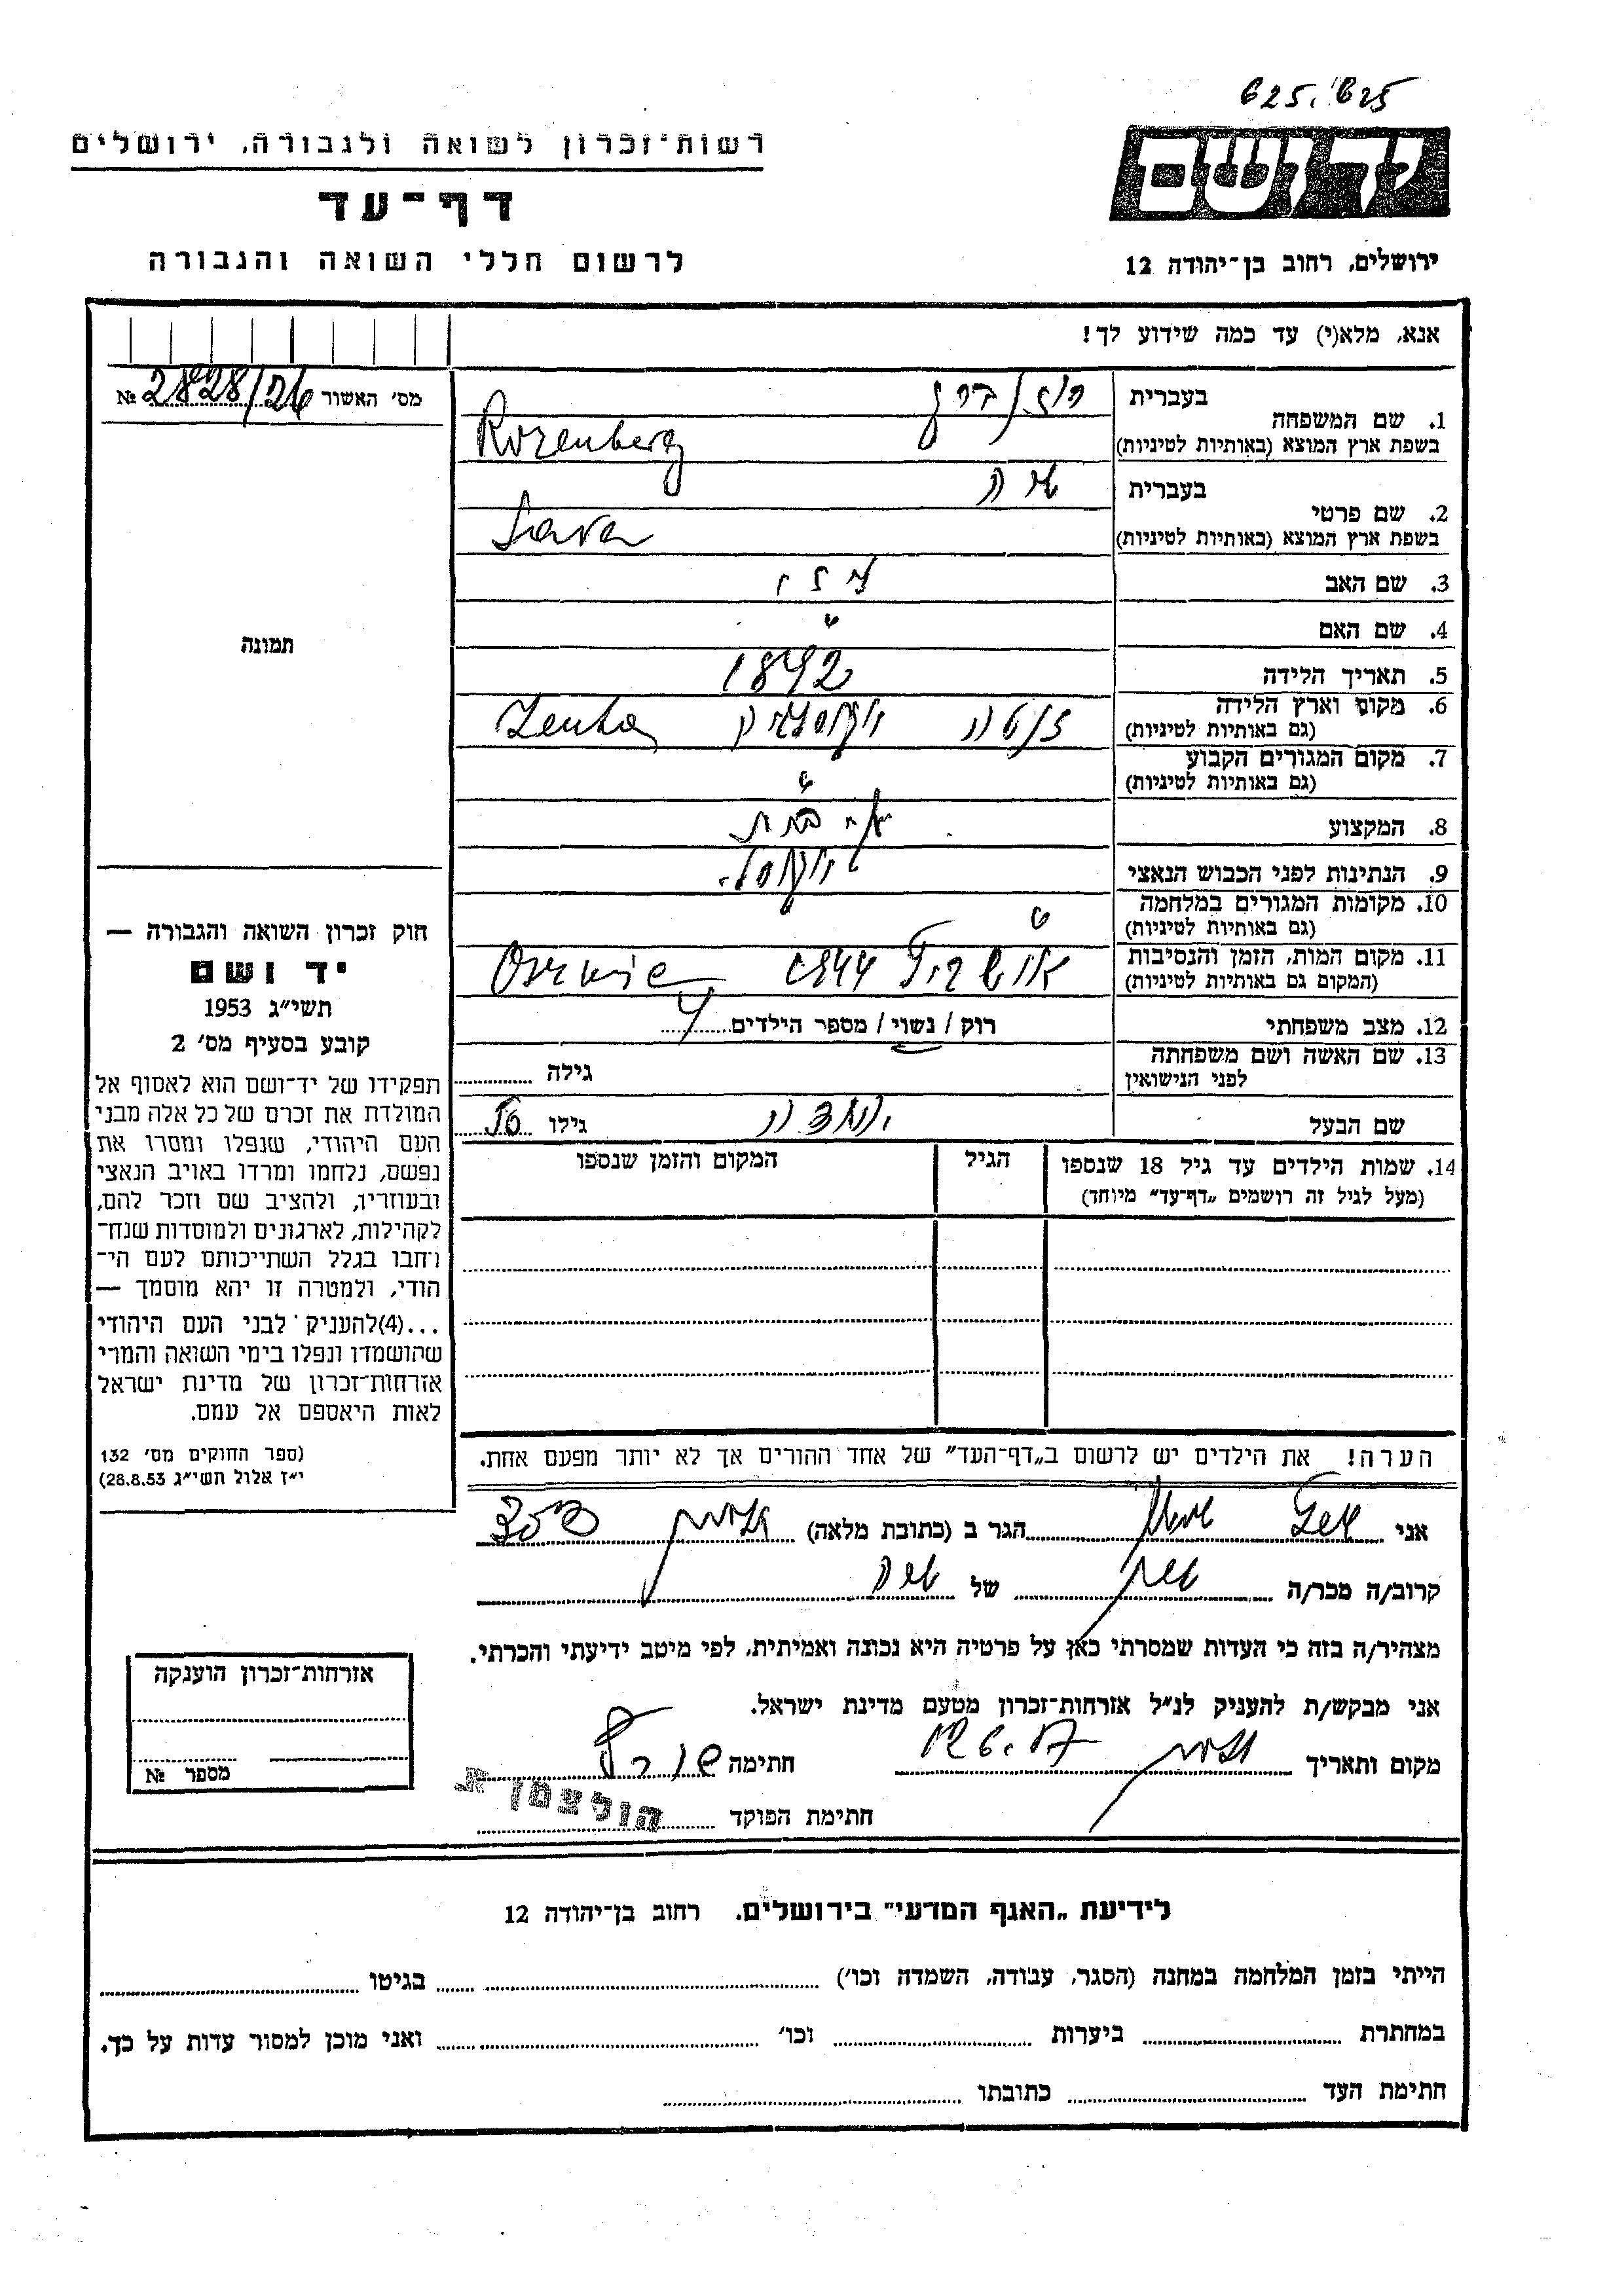 625. 625
ידושם
ירושלים, רחוב בן-יהודה 12
רשות-זכרון לשואה ולגבורה, ירושלים
דף-עד
לרשום חללי השואה והגבורה
אנא, מלא(י) עד כמה שידוע לך!
מס׳ האשור 2828/26 №
תמונה
1. שם המשפחה
בעברית רוזנברג
בשפת ארץ המוצא (באותיות לטיניות) Rozenberg
2. שם פרטי
בעברית שרה
בשפת ארץ המוצא (באותיות לטיניות) Sara
3. שם האב
4. שם האם
5. תאריך הלידה 1892
6. מקום וארץ הלידה
(גם באותיות לטיניות) זנטה Zenta
7. מקום המגורים הקבוע
(גם באותיות לטיניות)
8. המקצוע
9. הנתינות לפני הכבוש הנאצי
10. מקומות המגורים במלחמה
(גם באותיות לטיניות)
11. מקום המות, הזמן והנסיבות
(המקום גם באותיות לטיניות) 1944
12. מצב משפחתי רוק / נשוי / מספר הילדים 4
13. שם האשה ושם משפחתה
לפני הנישואין גילה
שם הבעל גילו
14. שמות הילדים עד גיל 18 שנספו
(מעל לגיל זה רושמים „דף-עד״ מיוחד)
הגיל
המקום והזמן שנספו
הערה! את הילדים יש לרשום ב„דף-העד״ של אחד ההורים אך לא יותר מפעם אחת.
חוק זכרון השואה והגבורה —
יד ושם
תשי״ג 1953
קובע בסעיף מס׳ 2
תפקידו של יד-ושם הוא לאסוף אל
המולדת את זכרם של כל אלה מבני
העם היהודי, שנפלו ומסרו את
נפשם, נלחמו ומרדו באויב הנאצי
ובעוזריו, ולהציב שם וזכר להם,
לקהילות, לארגונים ולמוסדות שנח־
רחבו בגלל השתייכותם לעם הי־
הודי, ולמטרה זו יהא מוסמך —
...(4)להעניק לבני העם היהודי
שהושמדו ונפלו בימי השואה והמרי
אזרחות-זכרון של מדינת ישראל
לאות היאספם אל עמם.
(ספר החוקים מס׳ 132
י״ז אלול תשי״ג 28.8.53)
אני הגר ב (כתובת מלאה)
קרוב/ה מכר/ה של שרה
מצהיר/ה בזה כי העדות שמסרתי כאן על פרטיה היא נכונה ואמיתית, לפי מיטב ידיעתי והכרתי.
אני מבקש/ת להעניק לנ״ל אזרחות-זכרון מטעם מדינת ישראל.
מקום ותאריך חתימה
חתימת הפוקד הולצמן א.
אזרחות-זכרון הוענקה
מספר №
לידיעת „האגף המדעי״ בירושלים. רחוב בן-יהודה 12
הייתי בזמן המלחמה במחנה (הסגר, עבודה, השמדה וכו׳) בגיטו
במחתרת ביערות וכו׳ ואני מוכן למסור עדות על כך.
חתימת העד כתובתו